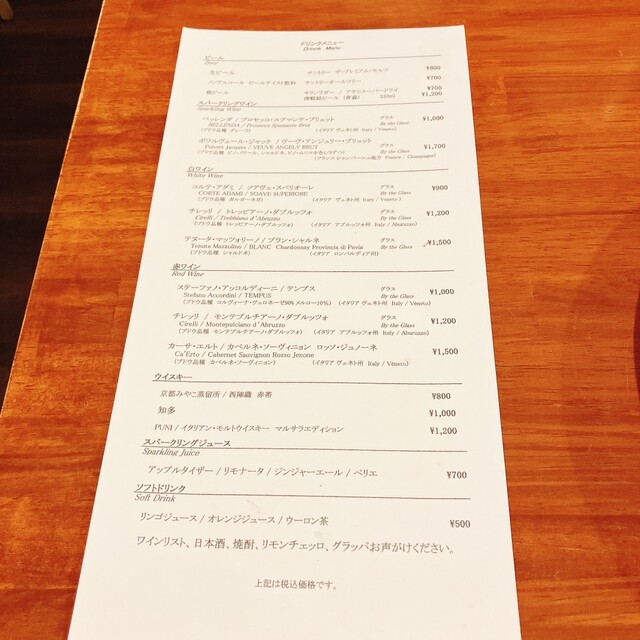 ドリンクメニュー
Drink Menu
ビール
Beer
生ビール サントリー ザ・プレミアム・モルツ ¥800
ノンアルコール ビールテイスト飲料 サントリーオールフリー ¥700
瓶ビール キリンラガー / アサヒスーパードライ ¥700
350ml ¥1,200
スパークリングワイン
Sparkling Wine
ベッレンダ / プロセッコ・スプマンテ・ブリュット グラス ¥1,000
BELLENDA / Prosecco Spumante Brut By the Glass
(ブドウ品種 グレーラ) (イタリア ヴェネト州 Italy / Veneto)
ポワルヴェール・ジャック / ヴーヴ・アンジェリー・ブリュット グラス ¥1,700
Poivert Jacques / VEUVE ANGELY BRUT By the Glass
(ブドウ品種 (フランス シャンパーニュ地方 France / Champagne)
白ワイン
White Wine
コルテ・アダミ / ソアヴェ・スペリオーレ グラス ¥900
CORTE ADAMI / SOAVE SUPERIORE By the Glass
(ブドウ品種 ガルガーネガ) (イタリア ヴェネト州 Italy / Veneto)
チレッリ / トレッビアーノ・ダブルッツォ グラス ¥1,200
Cirelli / Trebbiano d'Abruzzo By the Glass
(ブドウ品種 トレッビアーノ・ダブルッツォ) (イタリア アブルッツォ州 Italy / Aburuzzo)
テヌータ・マッツォリーノ / ブラン・シャルネ グラス ¥1,500
Tenuta Mazzolino / BLANC Chardonnay Provincia di Pavia By the Glass
(ブドウ品種 シャルドネ) (イタリア ロンバルディア州)
赤ワイン
Red Wine
ステーファノ・アッコルディーニ / テンプス グラス ¥1,000
Stefano Accordini / TEMPUS By the Glass
(ブドウ品種 コルヴィーナ・ヴェロネーゼ90% メルロー10%) (イタリア ヴェネト州 Italy / Veneto)
チレッリ / モンテプルチアーノ・ダブルッツォ グラス ¥1,200
Cirelli / Montepulciano d'Abruzzo By the Glass
(ブドウ品種 モンテプルチアーノ・ダブルッツォ) (イタリア アブルッツォ州 Italy / Aburuzzo)
カーサ・エルト / カベルネ・ソーヴィニョン ロッソ・ジェノーネ グラス ¥1,500
Ca'Erto / Cabernet Sauvignon Rosso Jenone By the Glass
(ブドウ品種 カベルネ・ソーヴィニョン) (イタリア ヴェネト州 Italy / Veneto)
ウイスキー
京都みやこ蒸留所 / 西陣織 赤帯 ¥800
知多 ¥1,000
PUNI / イタリアン・モルトウイスキー マルサラエディション ¥1,200
スパークリングジュース
Sparkling Juice
アップルタイザー / リモナータ / ジンジャーエール / ペリエ ¥700
ソフトドリンク
Soft Drink
リンゴジュース / オレンジジュース / ウーロン茶 ¥500
ワインリスト、日本酒、焼酎、リモンチェッロ、グラッパお声がけください。
上記は税込価格です。